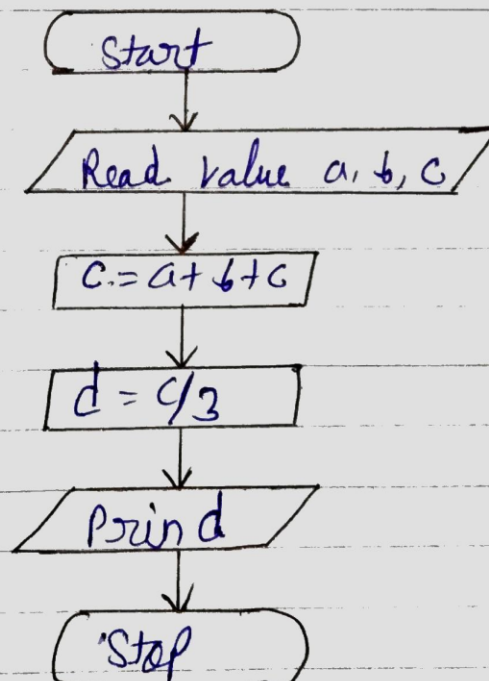 Start
Read value a, b, c
C = a + b + c
d = c/3
Prin d
Stop